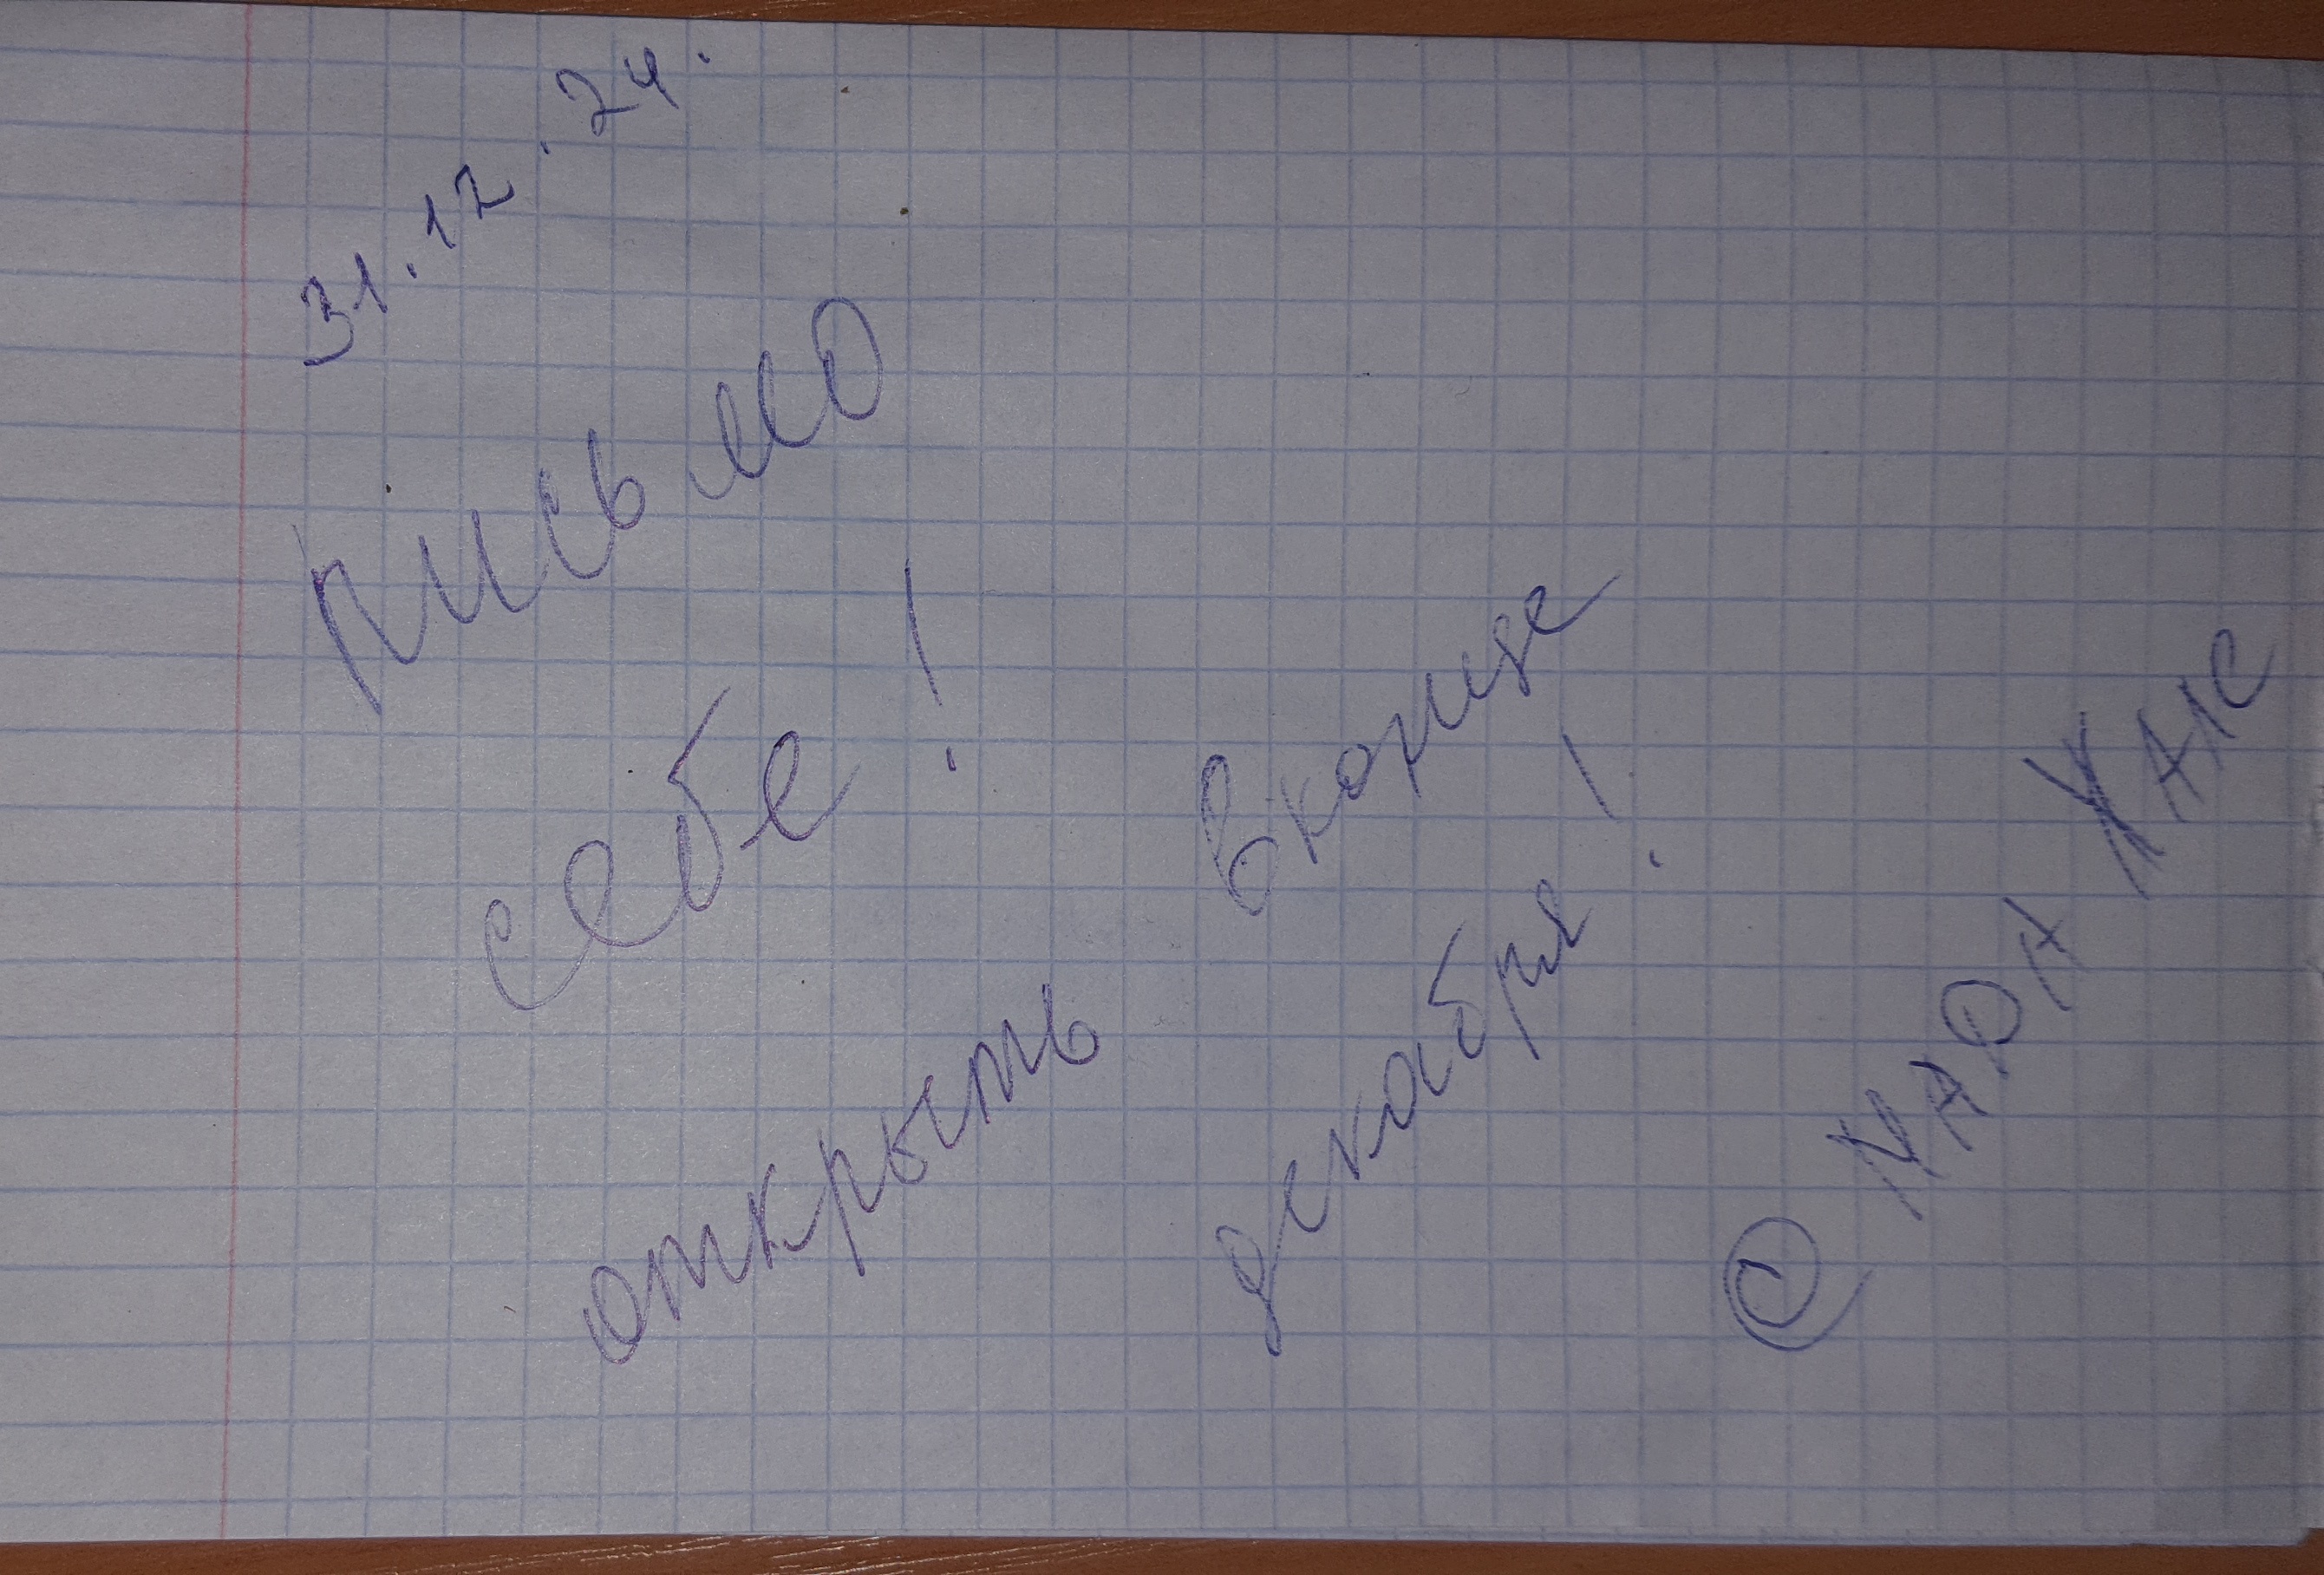 31.12.24.
письмо
себе!
открыть вконце
декабря!
©